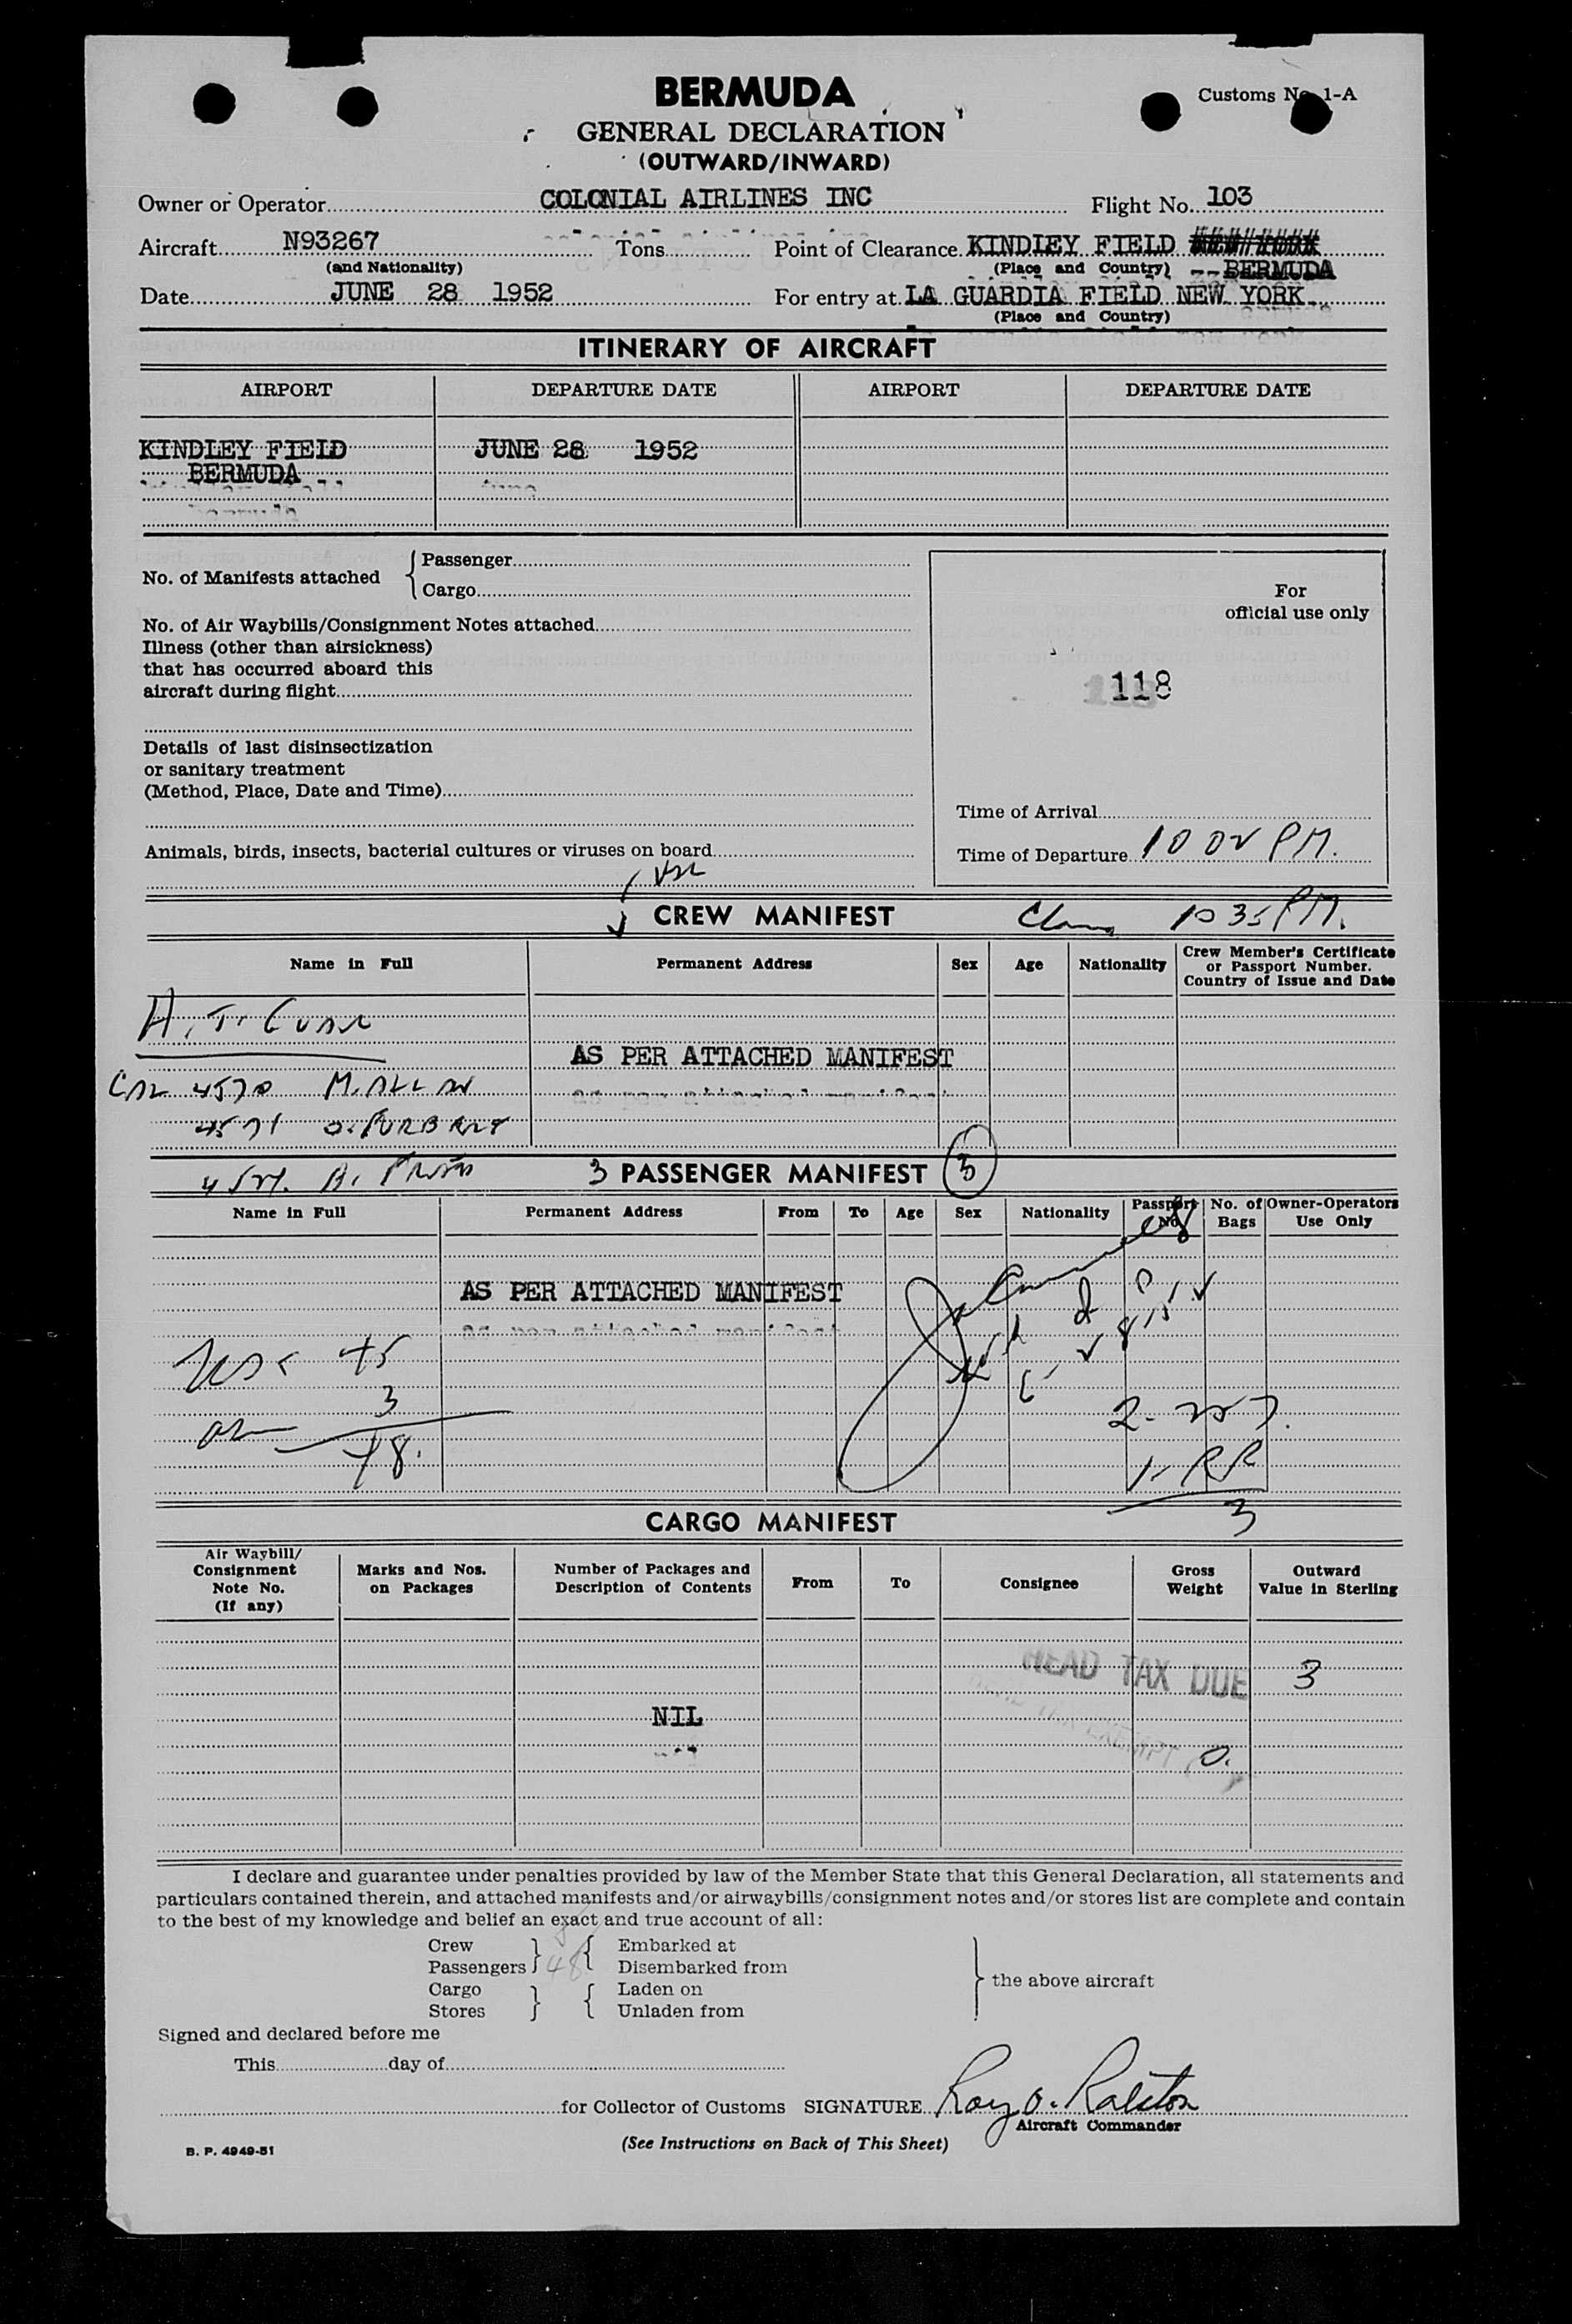 BERMUDA
Customs No. 1-A
GENERAL DECLARATION
(OUTWARD/INWARD)
Owner or Operator COLONIAL AIRLINES INC Flight No. 103
Aircraft N93267 Tons Point of Clearance KINDLEY FIELD
(and Nationality) (Place and Country) --BERMUDA
Date JUNE 28 1952 For entry at LA GUARDIA FIELD NEW YORK
(Place and Country)
ITINERARY OF AIRCRAFT
AIRPORT DEPARTURE DATE AIRPORT DEPARTURE DATE
KINDLEY FIELD JUNE 28 1952
BERMUDA
No. of Manifests attached Passenger
Cargo
For
official use only
No. of Air Waybills/Consignment Notes attached
Illness (other than airsickness)
that has occurred aboard this
aircraft during flight
118
Details of last disinsectization
or sanitary treatment
(Method, Place, Date and Time)
Time of Arrival
Animals, birds, insects, bacterial cultures or viruses on board
Time of Departure 10 02 PM.
CREW MANIFEST 10 35 PM.
Name in Full Permanent Address Sex Age Nationality Crew Member's Certificate
or Passport Number.
Country of Issue and Date
AS PER ATTACHED MANIFEST
4570 M. ALLAN
4571
3 PASSENGER MANIFEST 3
Name in Full Permanent Address From To Age Sex Nationality Passport No. No. of Bags Owner-Operators Use Only
AS PER ATTACHED MANIFEST
3
1- RR
3
CARGO MANIFEST
Air Waybill/
Consignment
Note No.
(If any)
Marks and Nos.
on Packages
Number of Packages and
Description of Contents
From To Consignee
Gross
Weight
Outward
Value in Sterling
HEAD TAX DUE 3
NIL
TAX EXEMPT 0.
I declare and guarantee under penalties provided by law of the Member State that this General Declaration, all statements and
particulars contained therein, and attached manifests and/or airwaybills/consignment notes and/or stores list are complete and contain
to the best of my knowledge and belief an exact and true account of all:
Crew Embarked at
Passengers 48 Disembarked from
the above aircraft
Cargo Laden on
Stores Unladen from
Signed and declared before me
This day of
for Collector of Customs SIGNATURE Roy O. Ralston
Aircraft Commander
B. P. 4949-51
(See Instructions on Back of This Sheet)